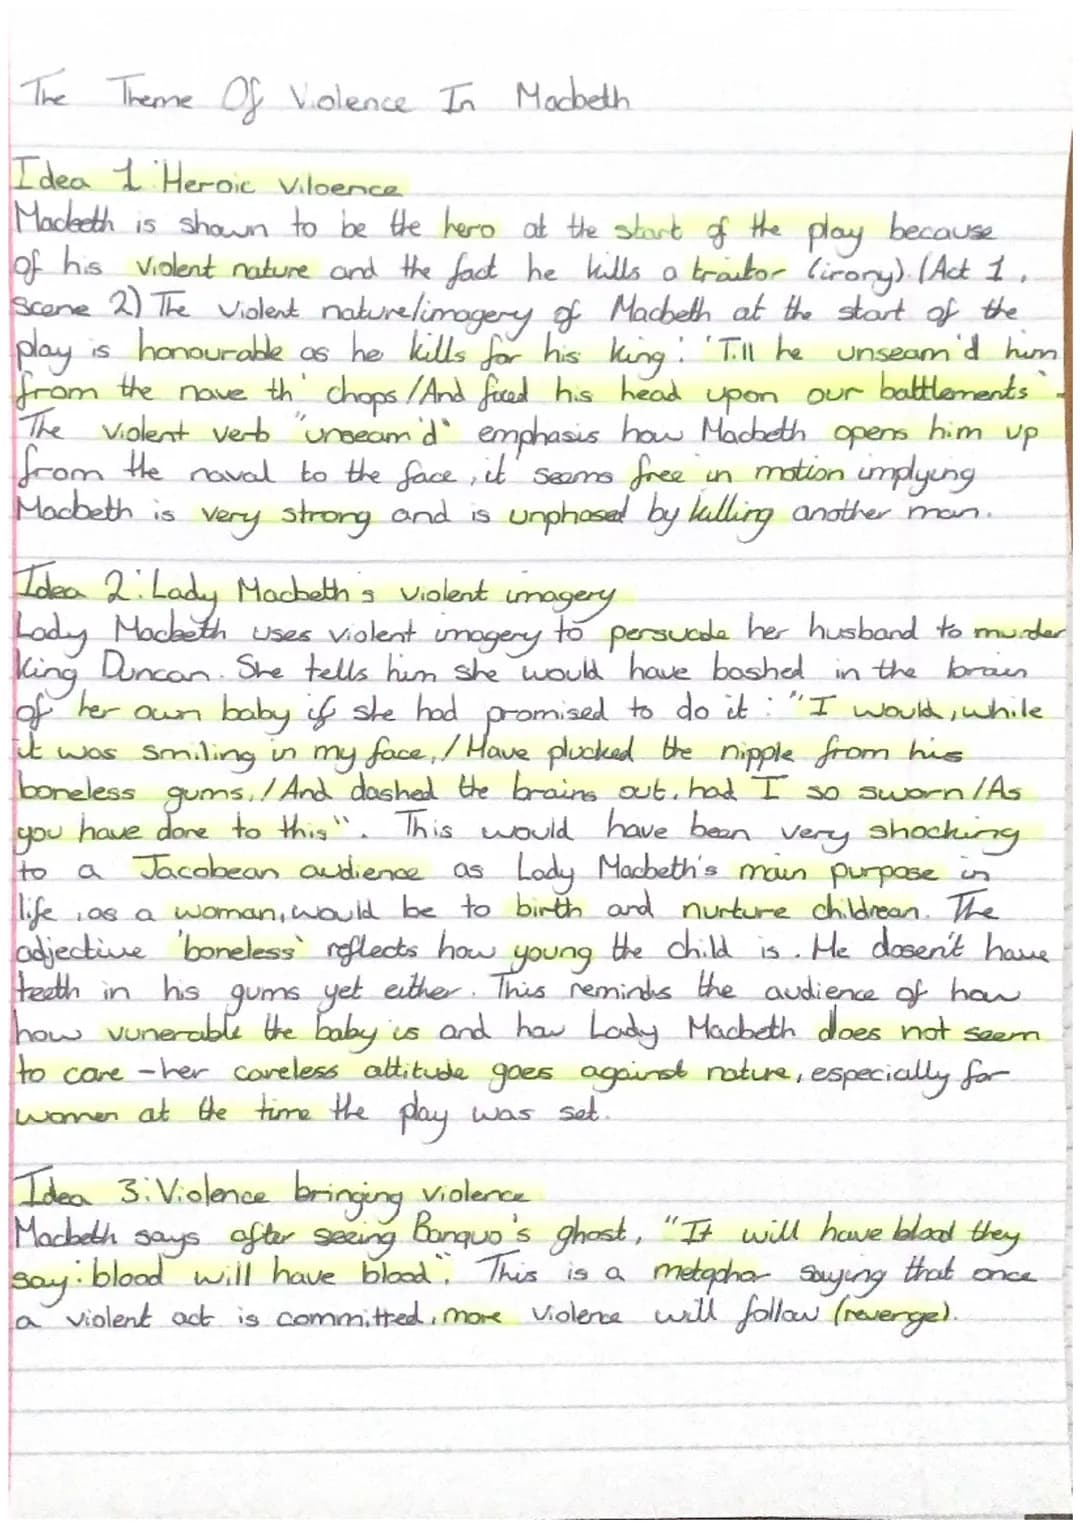 The Theme Of Violence In Macbeth
Idea 1: Heroic Viloence
Macbeth is shown to be the hero at the start of the play because
of his violent nature and the fact he kills a traitor (irony). (Act 1,
Scene 2) The violent nature/imagery of Macbeth at the start of the
play is honourable as he kills for his king: 'Till he unseam'd him
from the nave th' chops / And fixed his head upon our battlements".
The violent verb "unseam'd" emphasis how Macbeth opens him up
from the naval to the face, it seems free in motion implying
Macbeth is very strong and is unphased by killing another man.
Idea 2: Lady Macbeth's violent imagery
Lady Macbeth uses violent imagery to persuade her husband to murder
King Duncan. She tells him she would have bashed in the brain
of her own baby if she had promised to do it: "I would, while
it was smiling in my face, / Have plucked the nipple from his
boneless gums, / And dashed the brains out, had I so sworn / As
you have done to this". This would have been very shocking
to a Jacobean audience as Lady Macbeth's main purpose in
life, as a woman, would be to birth and nurture childrean. The
adjective 'boneless' reflects how young the child is. He dosen't have
teeth in his gums yet either. This reminds the audience of how
how vunerable the baby is and how Lady Macbeth does not seem
to care - her careless attitude goes against nature, especially for
women at the time the play was set.
Idea 3: Violence bringing violence
Macbeth says after seeing Banquo's ghost, "It will have blood they
say: blood will have blood". This is a metaphor saying that once
a violent act is committed, more violence will follow (revenge).